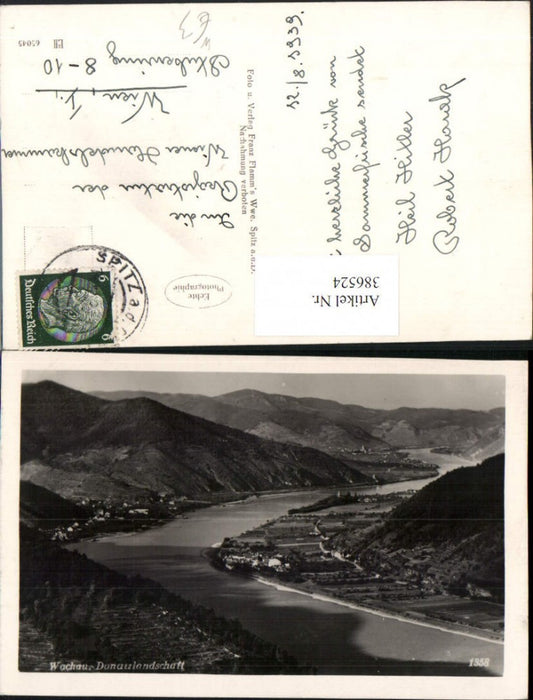 12./8. 1939.
herzliche Grüße von
Sommerfrische sendet
Heil Hitler
Robert
An die
Registratur der
Wiener Handelskammer
Wien, I.,
Stubenring
8-10
E3
EH 65045
Foto u. Verlag Franz Flamm's Wwe. Spitz a.d.D.
Nachahmung verboten
Echte
Photographie
SPITZ a.d.
Deutsches Reich
6 6
Artikel Nr.
386524
Wachau-Donaulandschaft
1358